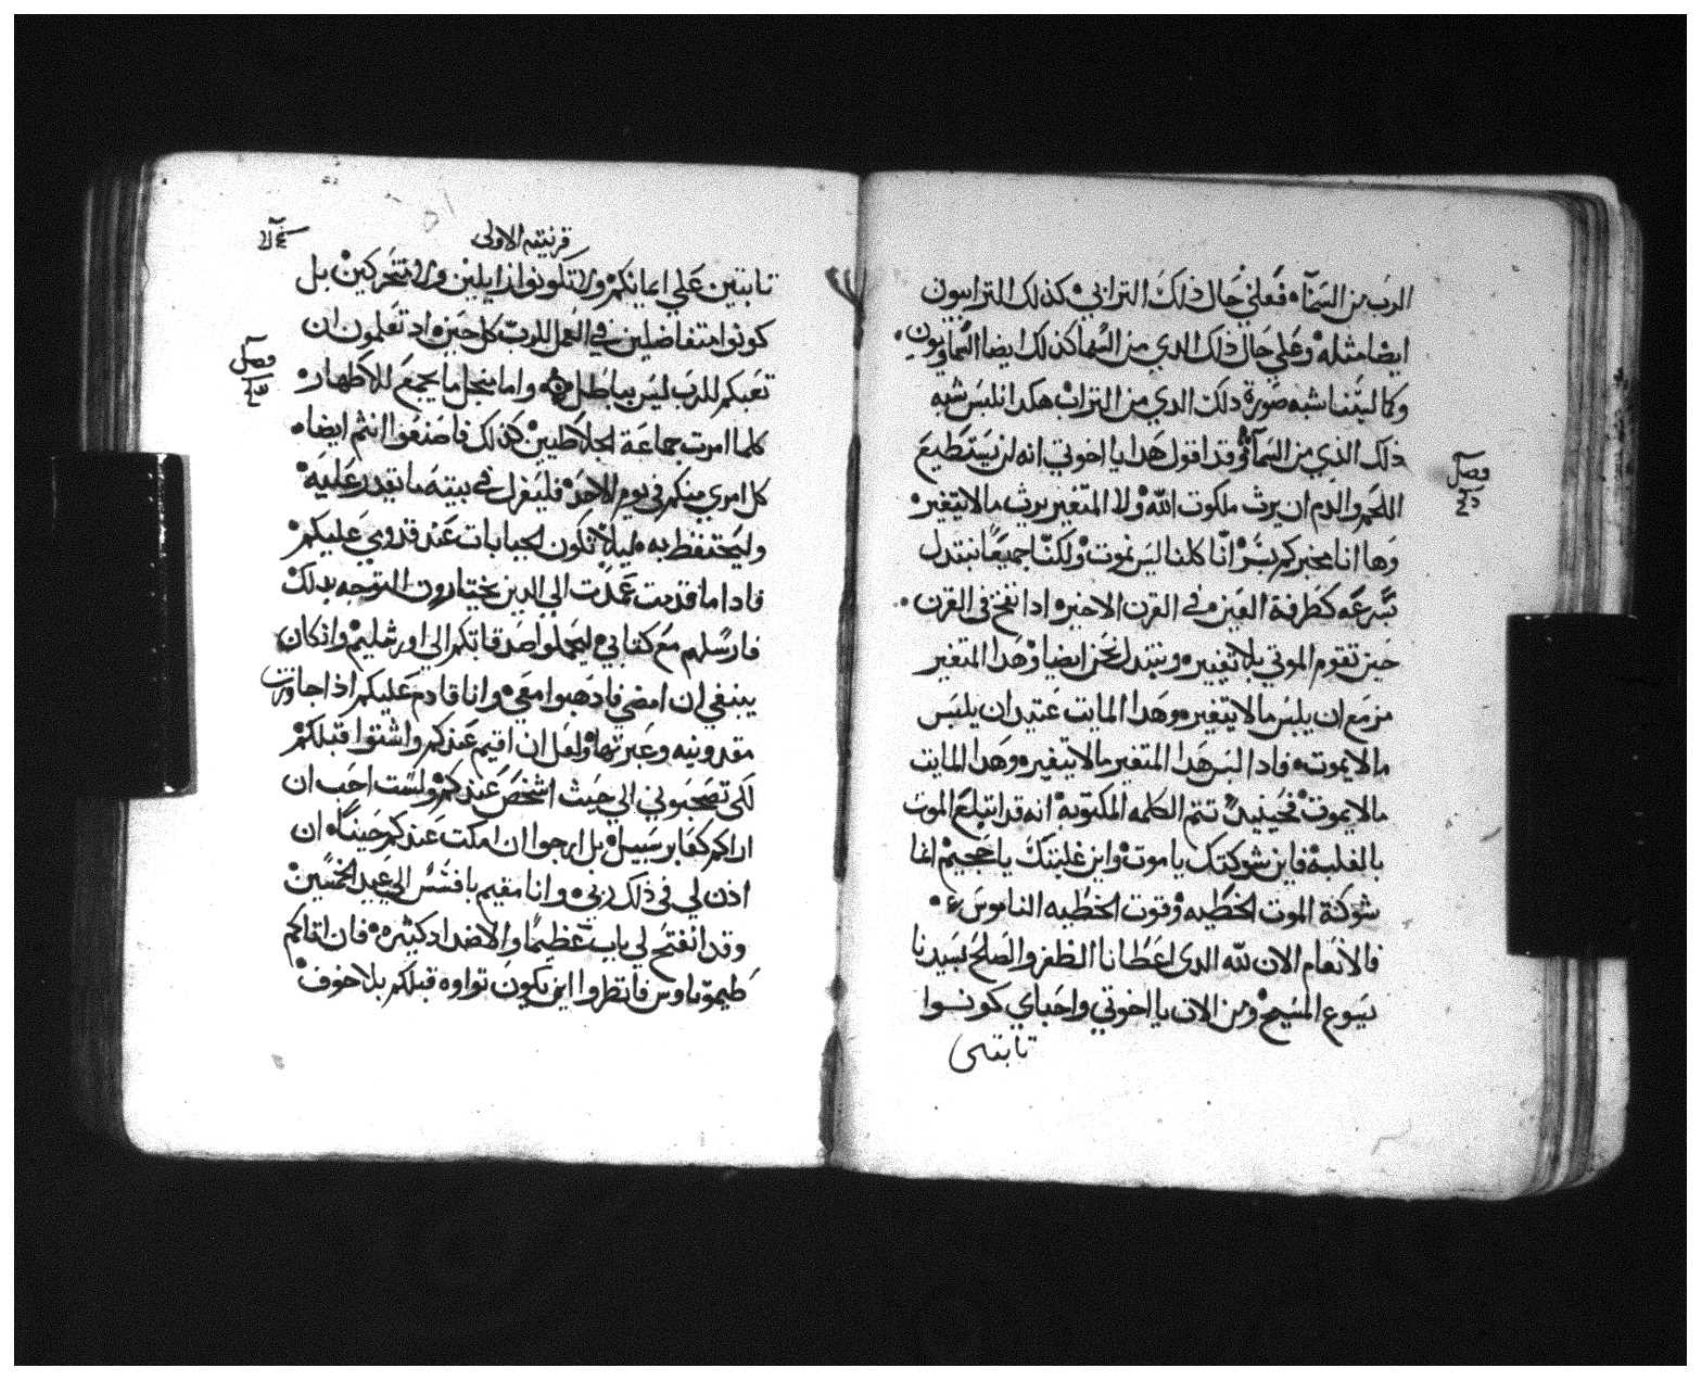 الرب من السمآء فعلي حال ذلك الترابي كذلك الترابيون
ايضا مثله وعلي حال ذلك الدي من السما كذلك ايضا السماويون
وكما لبسنا شبه صورة دلك الدي من التراب هكدا نلبس شبه
ذلك الذي من السمآء وقد اقول هدا يا اخوتي انه لن يستطيع
فصل
اللحم والدم ان يرث ملكوت الله ولا المتغير يرث ما لا يتغير
وها انا مخبركم بسر انا كلنا ليس نموت ولكنا جميعا نبتدل
بسرعه كطرفة العين في القرن الاخير ادا نفخ في القرن
حين تقوم الموتي بلا تغيير ونبتدل نحن ايضا وهدا المتغير
مزمع ان يلبس ما لا يتغير وهدا المايت عتيد ان يلبس
ما لا يموت فادا لبس هدا المتغير ما لا يتغير وهدا المايت
ما لا يموت فحينيد تتم الكلمه المكتوبة انه قد ابتلع الموت
بالغلبة فاين شوكتك يا موت واين غلبتك يا جحيم انما
شوكة الموت الخطيه وقوت الخطيه الناموس
فالانعام الان لله الدي اعطانا الظفر والصلح بسيدنا
يسوع المسيح ومن الان يا اخوتي واحباي كونوا
ثابتين
قرنتيه الاولي
ثابتين علي ايمانكم ولا تكونوا زايلين ولا متحركين بل
كونوا متفاضلين في العمل للرب كل حين اد تعلمون ان
فصل
تعبكم للرب ليس بباطل واما منحل ما يجمع للاطهار
كلما امرت جماعة الجلاطيين كذلك فاصنعوا انتم ايضا
كل امري منكم في يوم الاحد فليعزل في بيته ما يقدر عليه
وليحتفظ به ليلا تكون الجبايات عند قدومي عليكم
فادا ما قدمت عمدت الي الدين يختارون التوجه بدلك
فارسلهم مع كتابي ليحملوا صدقاتكم الي اورشليم وان كان
ينبغي ان امضي فادهبوا معي وانا قادم عليكم اذا جاوزت
مقدونيه وعبرتها ولعل ان اقيم عندكم واشتوا قبلكم
لكي تصحبوني الي حيث اشخص عندكم ولست احب ان
اراكم كعابر سبيل بل ارجوا ان امكت عندكم حينا ان
اذن لي في ذلك ربي وانا مقيم بافسس الي عيد الخمسين
وقد انفتح لي باب عظيما والاضداد كثيره فان اتاكم
طيموتاوس فانظروا اين يكون تواوه قبلكم بلا خوف